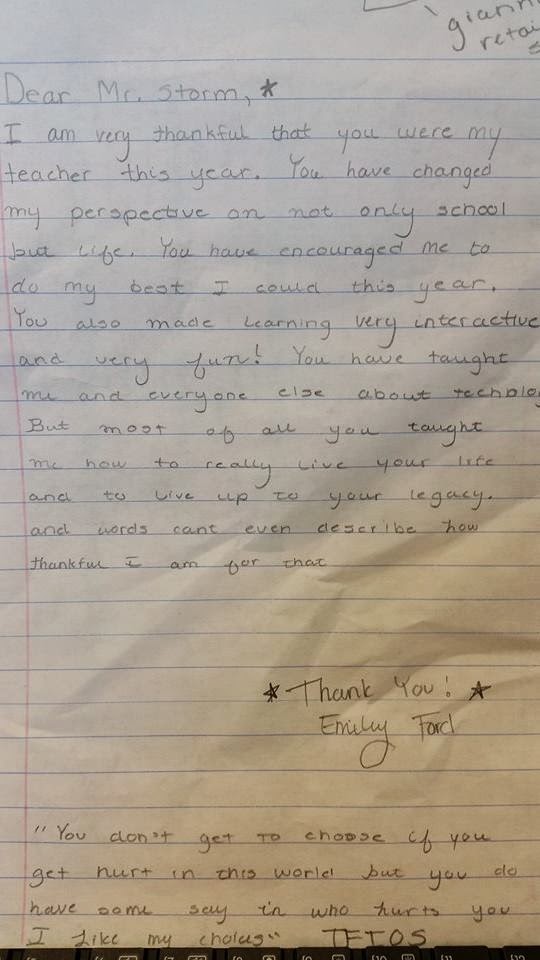 giann
retai
Dear Mr. Storm, *
I am very thankful that you were my
teacher this year. You have changed
my perspective on not only school
but life. You have encouraged me to
do my best I could this year.
You also made learning very interactive
and very fun! You have taught
me and everyone else about techblog
But most of all you taught
me how to really live your life
and to live up to your legacy.
and words cant even describe how
thankful I am for that
* Thank You! *
Emily Ford
"You don't get to choose if you
get hurt in this world but you do
have some say in who hurts you
I like my choices" TFIOS